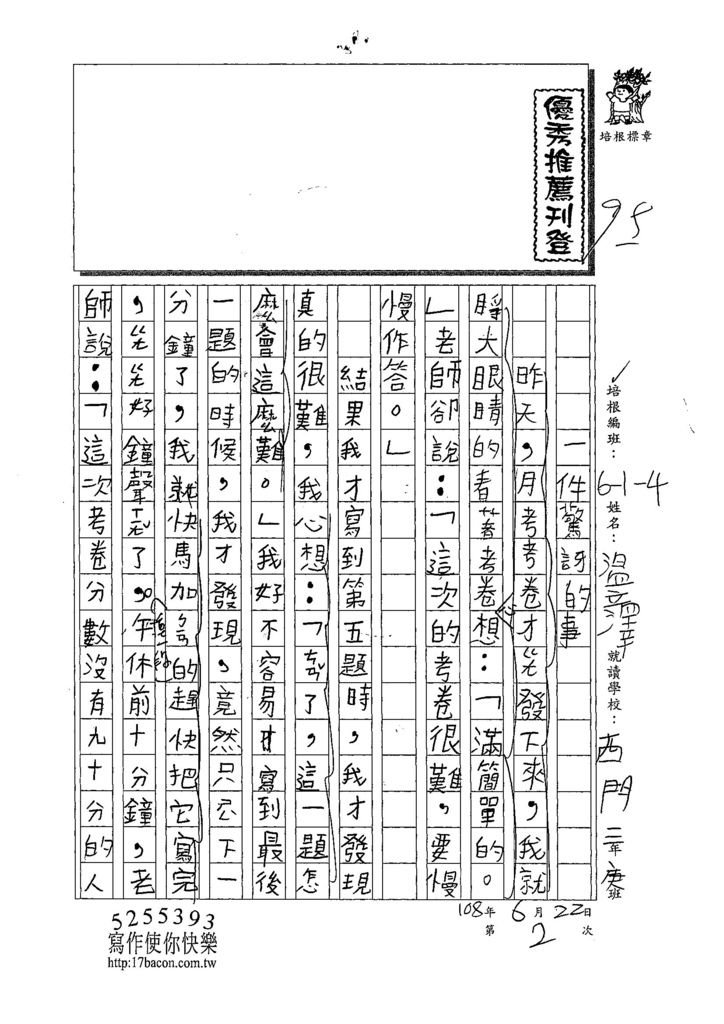 優秀推薦刊登
培根標章
95
培根編班：6-1-4
姓名：溫
就讀學校：西門二年庚班
108年6月22日
第2次
一件驚訝的事
昨天，月考考卷才ㄍㄤ發下來，我就
睜大眼睛的看著考卷想：「滿簡單的。
」老師卻說：「這次的考卷很難，要慢
慢作答。」
結果我才寫到第五題時，我才發現
真的很難，我心想：「了，這一題怎
麼會這麼難。」我好不容易才寫到最後
一題的時候，我才發現，竟然只ㄕㄥ下一
分鐘了，我就快馬加的趕快把它寫完
，ㄍㄤㄍㄤ好鐘聲了。午休前十分鐘，老
師說：「這次考卷分數沒有九十分的人
5255393
寫作使你快樂
http:17bacon.com.tw